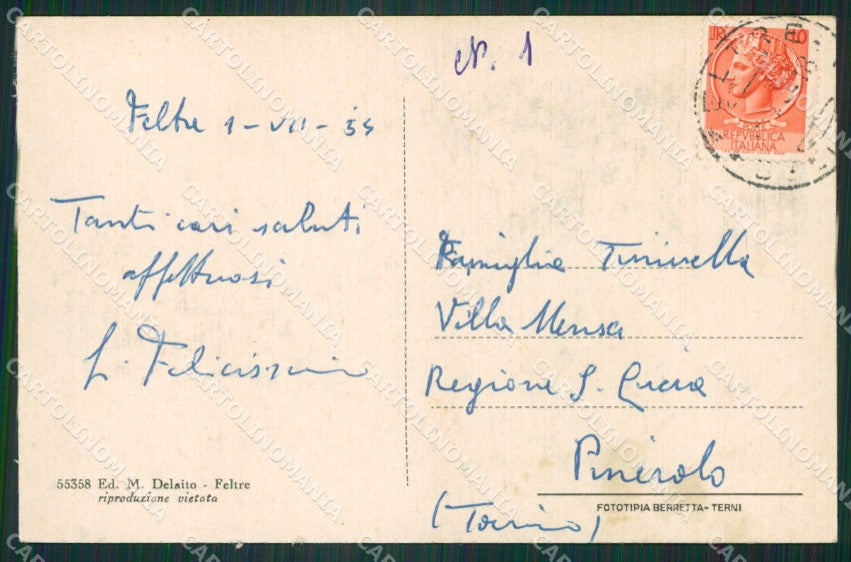 N. 1
Feltre 1-VII-55
Tanti cari saluti
affettuosi
L. Felicissimo
55358 Ed. M. Delaito - Feltre
riproduzione vietata
REPVBBLICA
ITALIANA
Famiglia
Villa Mensa
Regione S. Lucia
Pinerolo
(Torino)
FOTOTIPIA BERRETTA - TERNI
CARTOLINOMANIA